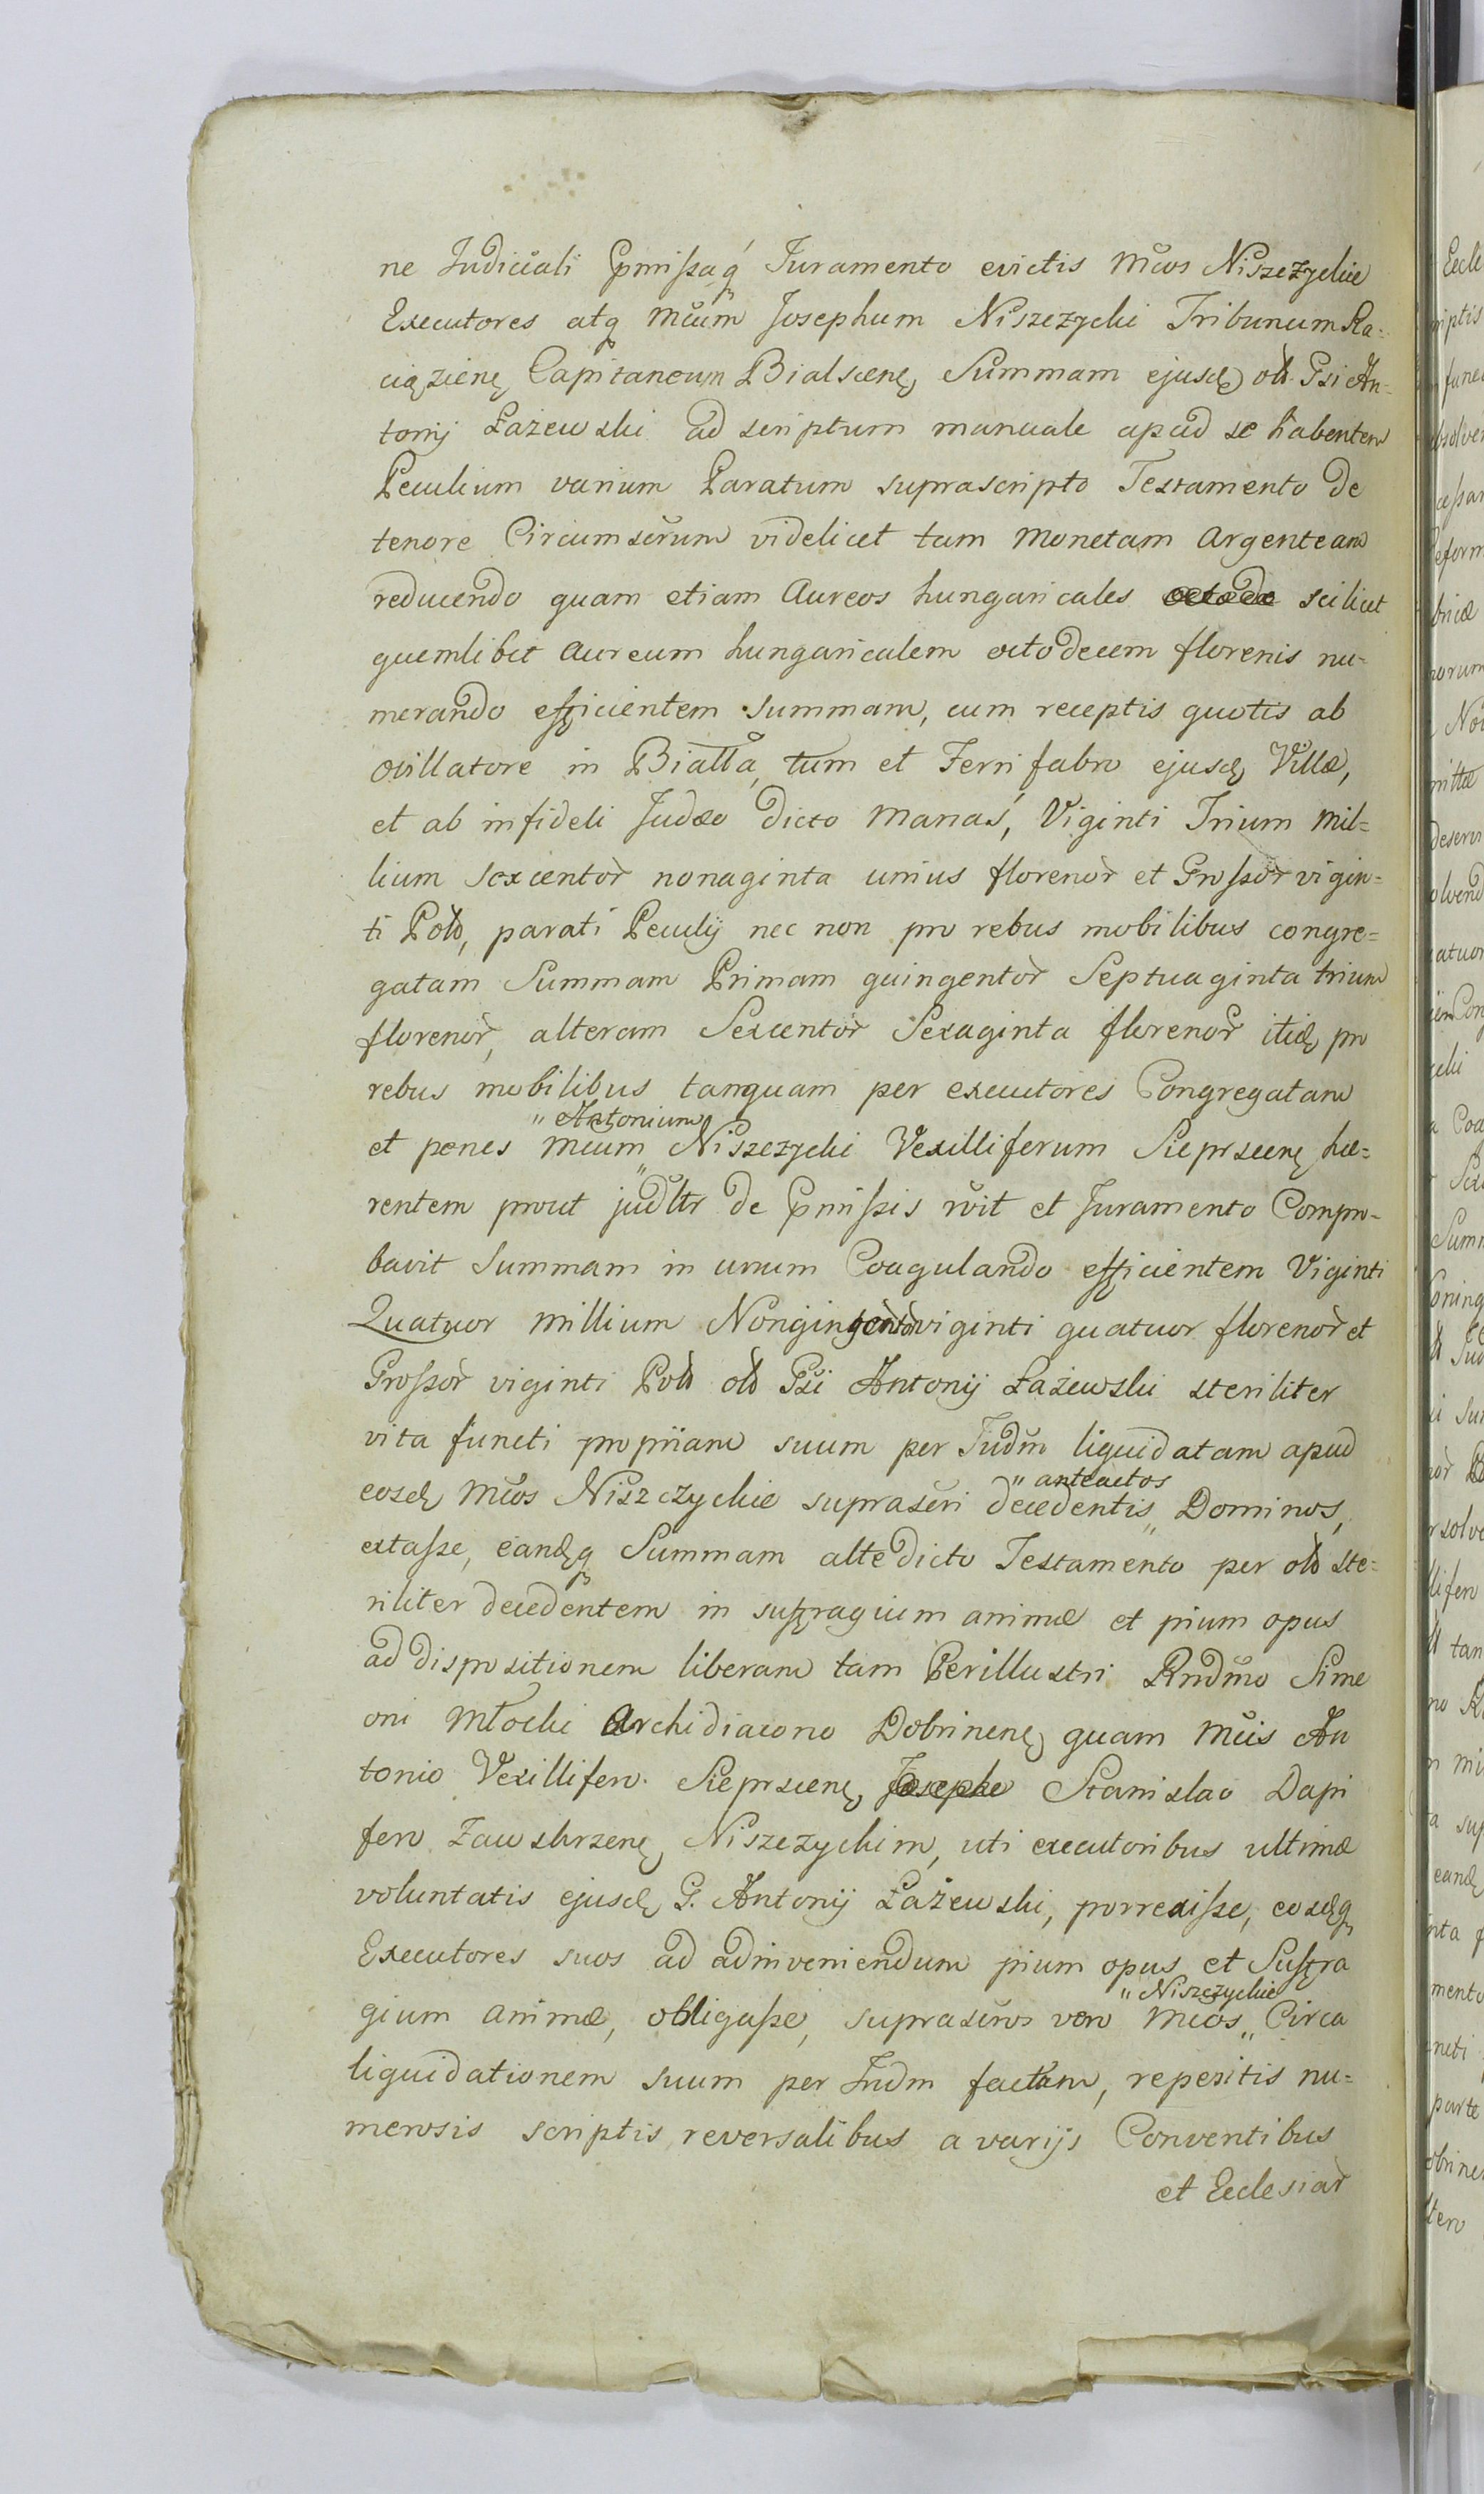 ne Judiciali Pmißaq́ Juramento evictis Mcos Niszczyckie
Executores atq Mcum Josephum Niszczycki Tribunum Ra-
ciązienę Capitaneum Bialscenę, Summam ejusdę olt Gsi An-
tonij Łażewski ad scriptum manuale apud se habentem
Peculium varium Paratum suprascripto Testamento de
tenore Circumscrum videlicet tam Monetam Argenteam
reducendo quam etiam Aureos hungaricales scilicet
quemlibet Aureum hungaricalem octodecem florenis nu-
merando efficientem Summam, cum receptis quotis ab
ovillatore in Biatta, tum et Ferri fabro ejusdę Villæ,
et ab infideli Judæo dicto Manaś, Viginti Trium Mil=
lium Sexcentor̀ nonaginta unius florenor̀ et Großor̀ vigin=
ti Polt, parati Peculij nec non pro rebus mobilibus congre=
gatam Summam Primam quingentor̀ Septuaginta trium
florenor̀, alteram Sexcentor̀ Sexaginta florenor̀ itidę pro
rebus mobilibus tanquam per executores Congregatam
" Antonium
et penes Mcum " Niszczycki Vexilliferum Sieprscenę hæ=
rentem prout judltr de Pmißis rcvit et Juramento Compro-
bavit Summam in unum Coagulando efficientem Viginti
Quatuor Millium Nongingentor̀ viginti quatuor florenor̀ et
Großor̀ viginti Polt olt Gsi Antonij Łażewski steriliter
vita functi propriam suum per Judm liquidatam apud
" anteactos
eosdę Mcos Niszczyckie suprascri decedentis " Dominos,
extaße, eandęq Summam altedicto Testamento per olt ste=
riliter decedentem in suffragium animæ et pium opus
ad dispositionem liberam tam Perillustri Rndmo Sime
oni Młocki Archidiacono Dobrinenę, quam Mcis An
tonio Vexillifero Sieprscenę, Josepho Stanislao Dapi
fero Zawskrzenę Niszczyckim, uti executoribus ultimæ
voluntatis ejusdę G. Antonij Łażewski, porrexiße, eosdęq
Executores suos ad adinveniendum pium opus et Suffra
" Niszczyckie
gium animæ, obligaße, suprascros vero Mcos " Circa
liquidationem suum per Judm factam, repetitis nu=
merosis scriptis reversalibus a varijs Conventibus
et Ecclesiar̀